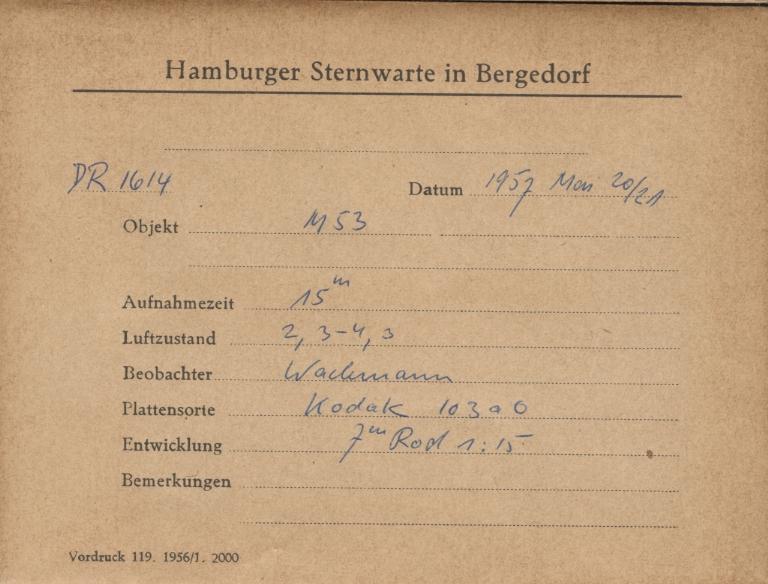 Hamburger Sternwarte in Bergedorf
DR 1614 Datum 1957 Mai 20/21
Objekt M 53
Aufnahmezeit 15m
Luftzustand 2, 3-4, 3
Beobachter Wachmann
Plattensorte Kodak 103aO
Entwicklung 7m Rod 1:15
Bemerkungen
Vordruck 119. 1956/1. 2000